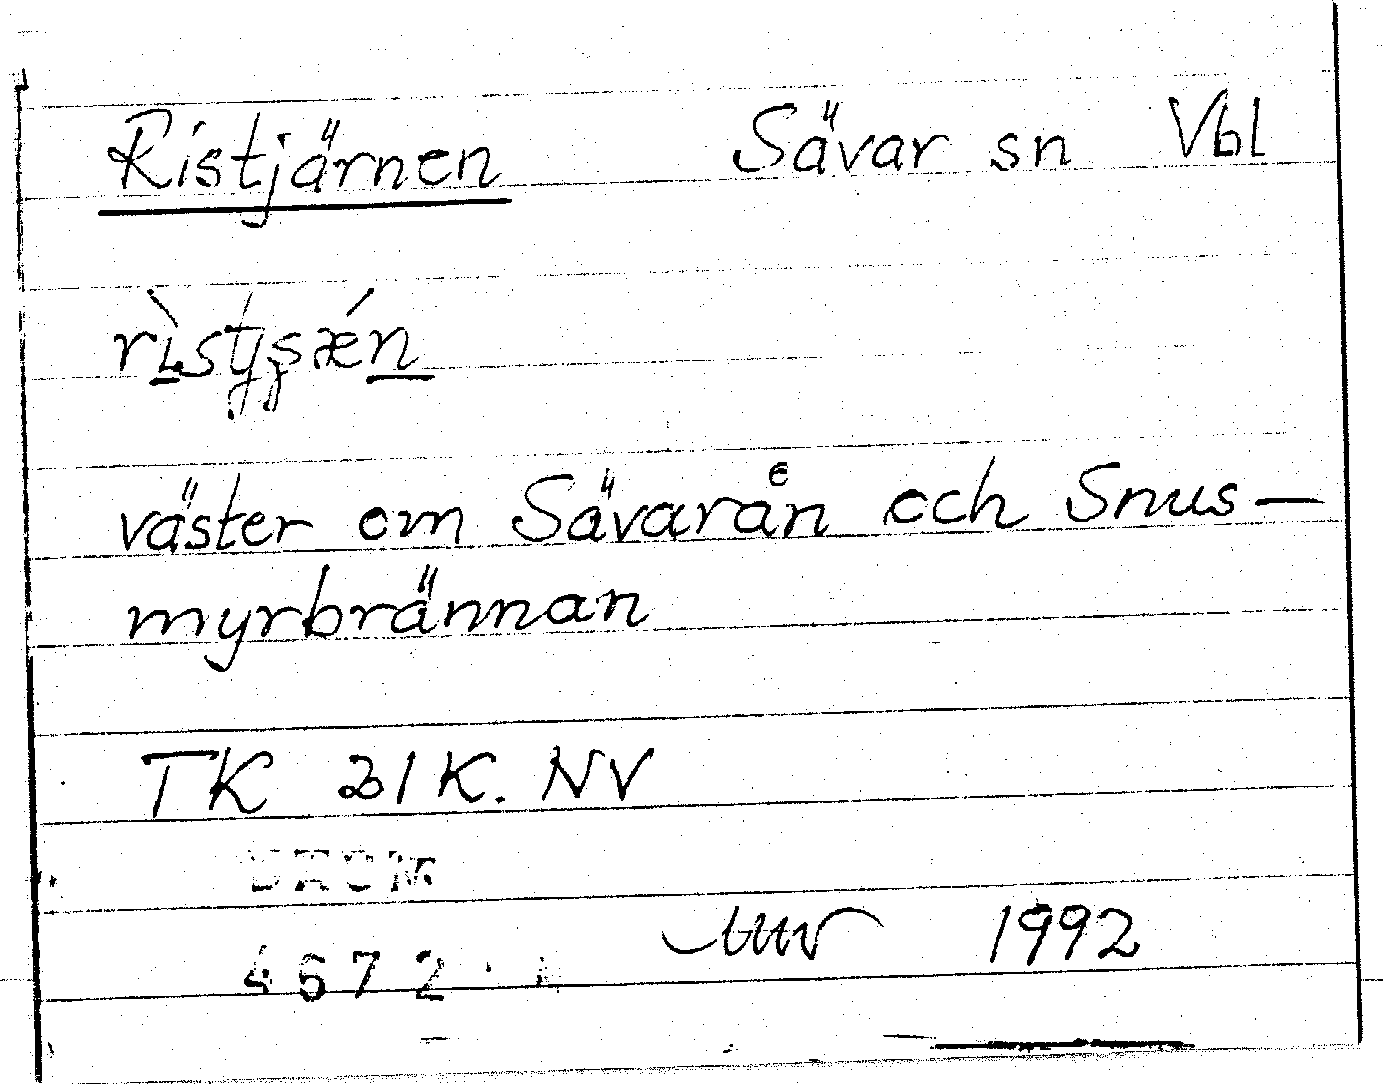 Ristjärnen Sävar sn Vbl
väster om Sävarån och Snus-
myrbrännan
TK 21K. NV
DAUM
4672
1992